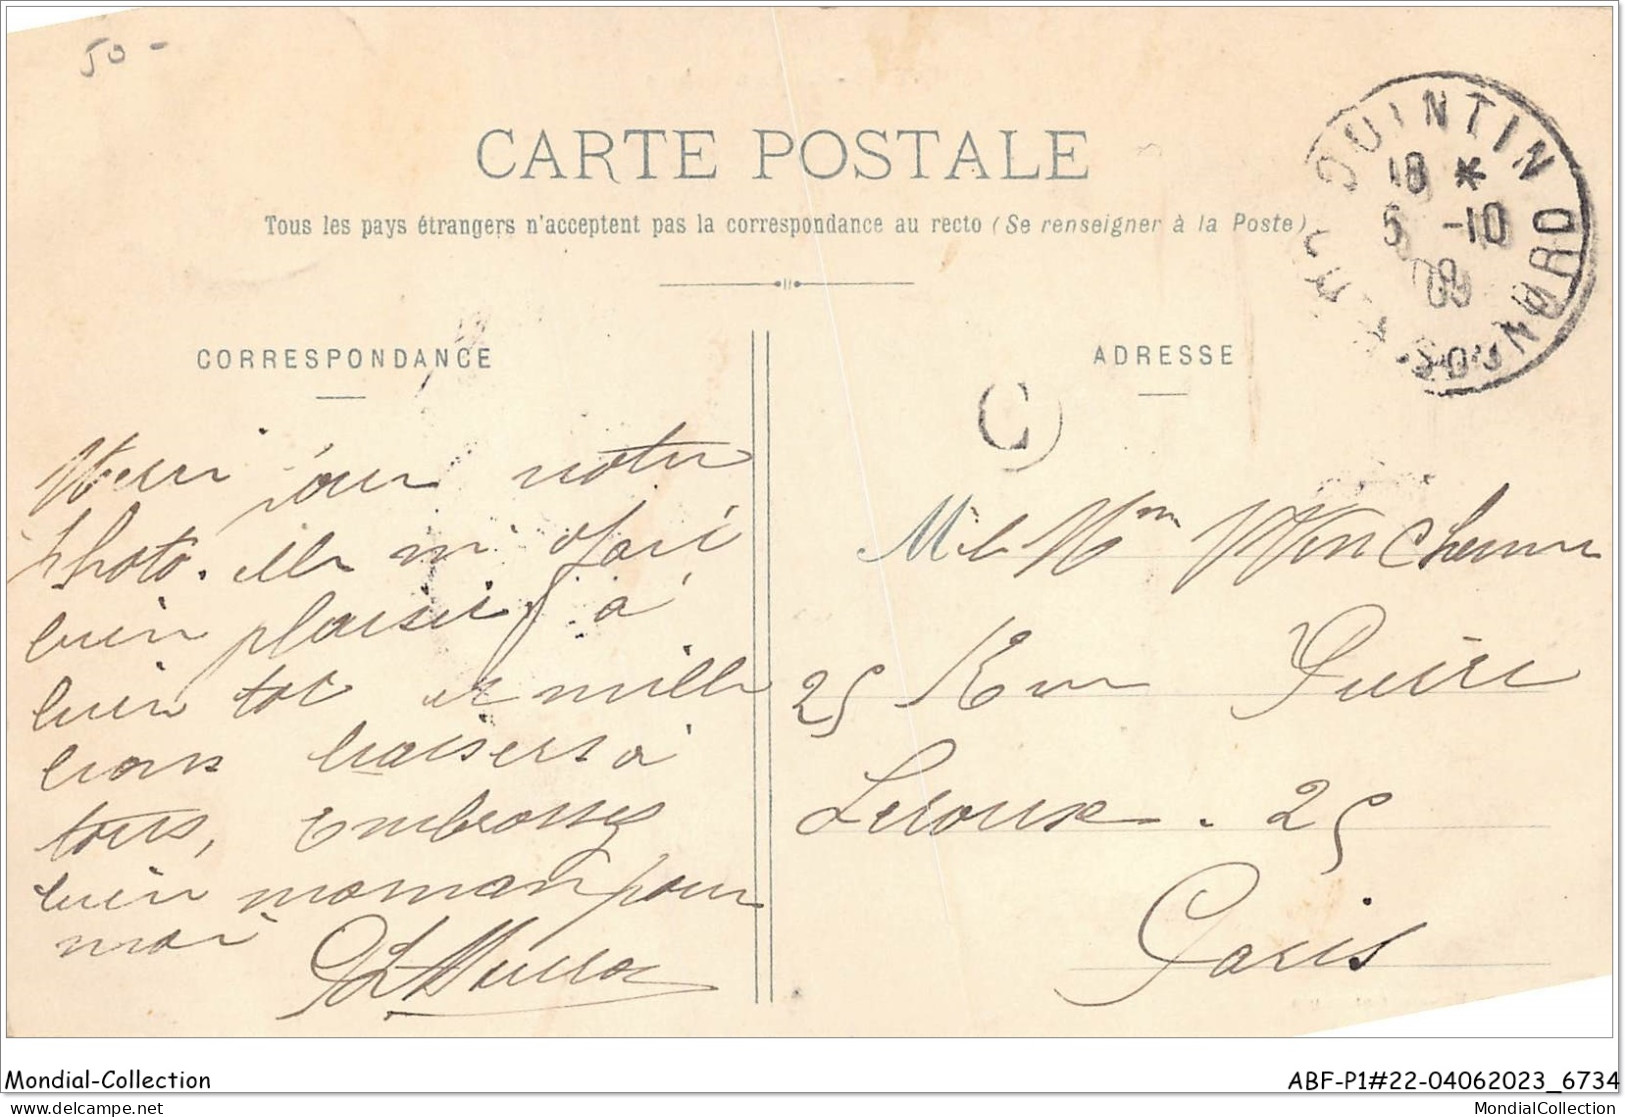 50 -
CARTE POSTALE
Tous les pays étrangers n'acceptent pas la correspondance au recto (Se renseigner à la Poste)
QUINTIN
18 *
5 -10
09
CÔTES DU NORD
CORRESPONDANCE
ADRESSE
C
Merci pour votre
photo. elle m'a fait
bien plaisir, à
bien tot et mille
bons baisers à
tous, embrassez
bien maman pour
moi
M et Mme
25 Rue Pierre
Leroux. 25
Paris
Mondial-Collection
ABF-P1#22-04062023_6734
delcampe.net
MondialCollection